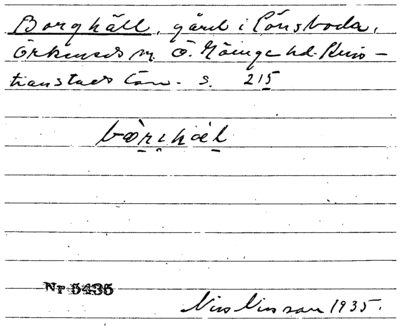 Borghäll, gård i Lönsboda,
Örkeneds sn Ö. Göinge hd. Kris-
tianstads län. s. 215
Nr 5435
Nils Nilsson 1935.